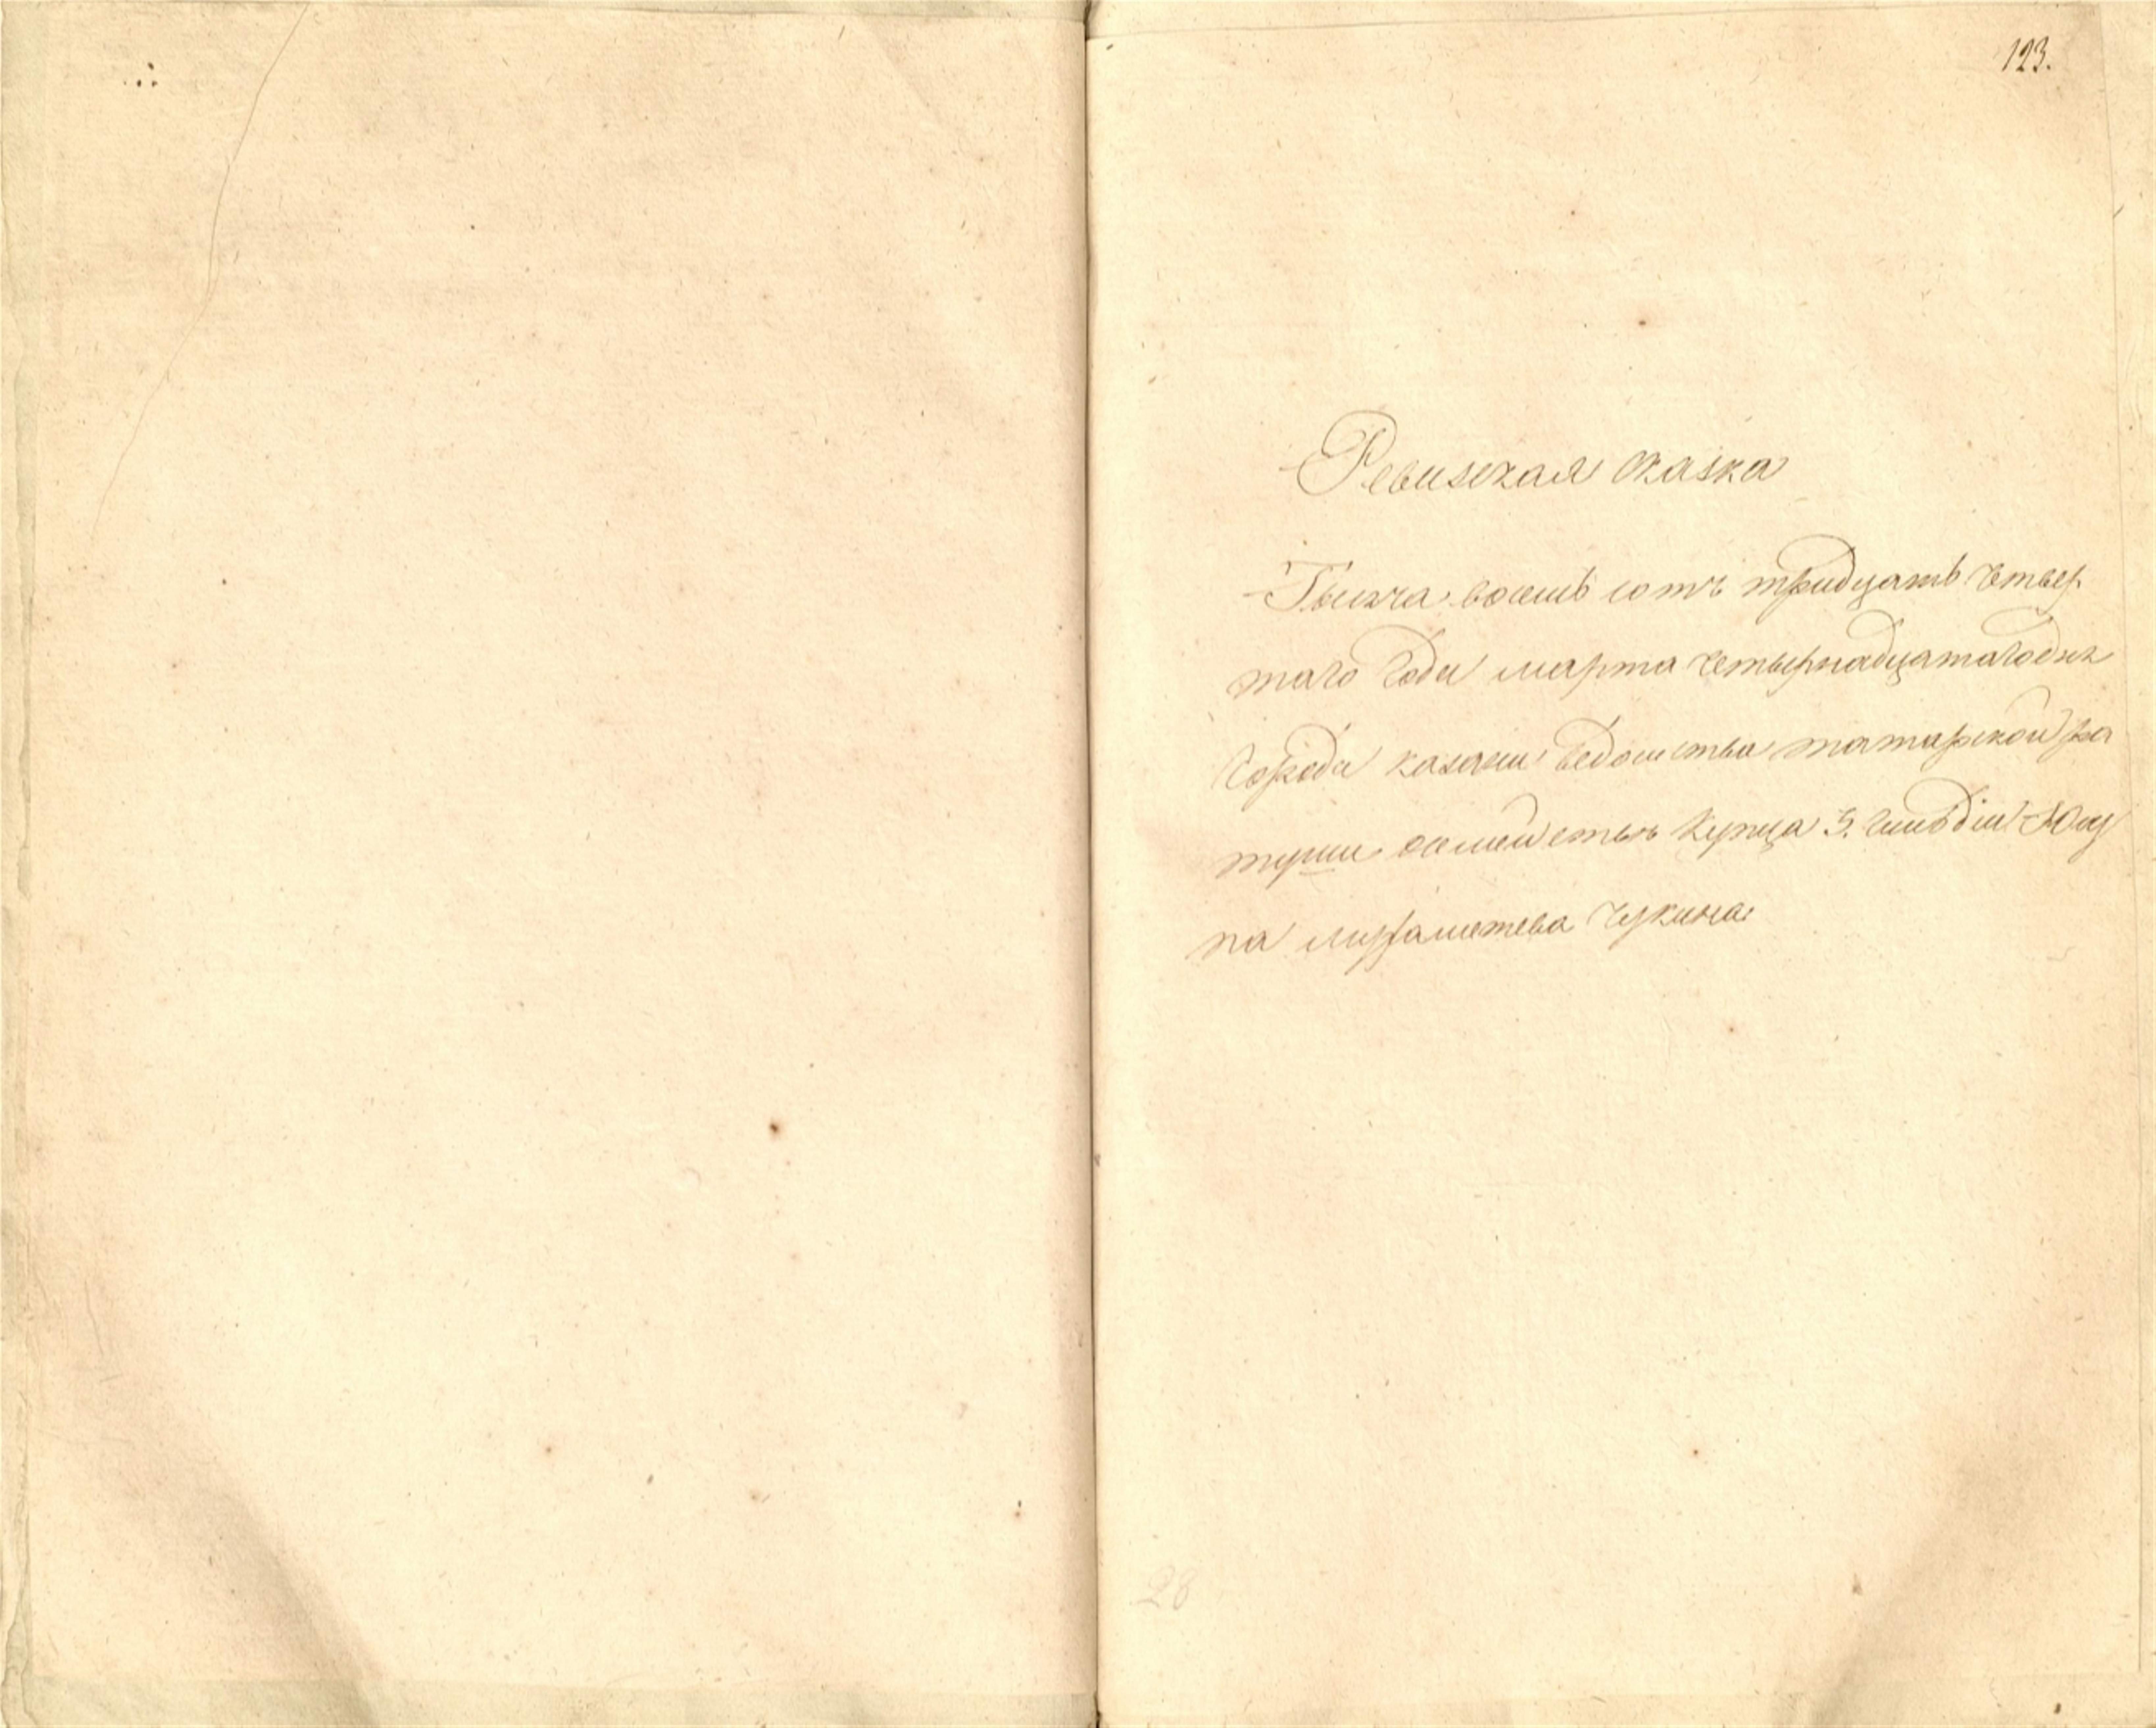 123.
Ревизская сказка
Тысяча восемь сотъ тридцать четвер
таго года марта четырнадцатаго дня
города казани ведомства татарской ра
туши о семействе купца 3. гильдiи Юсу
па Муртазина Чукина
28